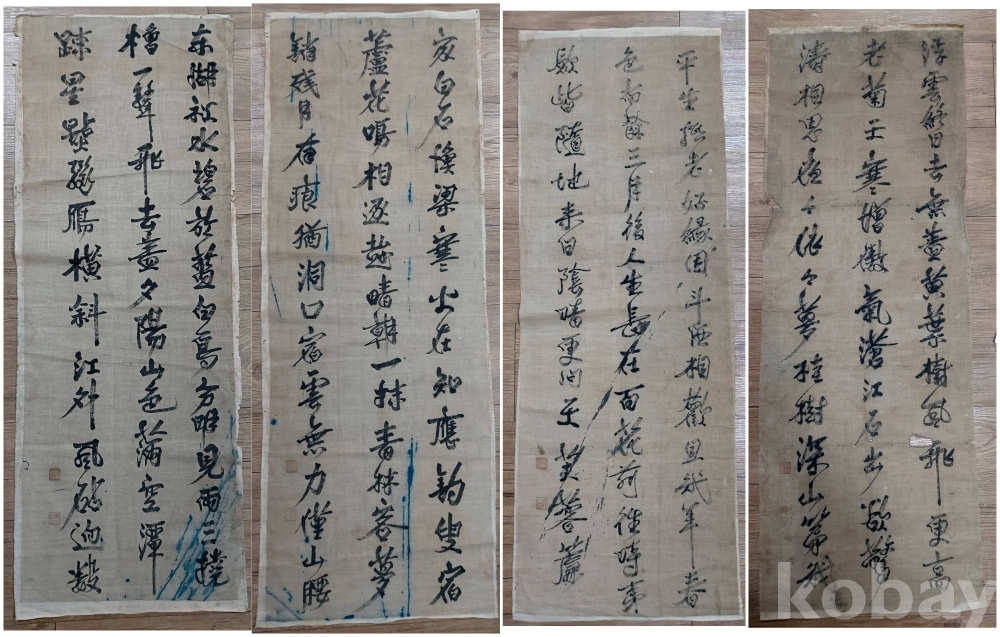 东湖秋水碧於藍白鳥分明見兩三搖
櫓一聲飛去盡夕陽山色滿空潭
疎星點點雁橫斜江外風砧迎數
家白石漁梁寒火在知應釣叟宿
蘆花鳴相逐趁晴朝一抹青林客夢
銷殘月有痕猶洞口宿雲無力僅山腰
平生老好緣因斗酒相歡且幾年春
色尚餘三月後人生長在百花前往時事
歇皆隨地来日陰晴更問天芙蓉簾
浮雲終日去無盡黃葉樹風飛更高
老菊天寒增傲氣滄江石出歇驚
濤相思處々依々夢桂樹深山第幾
kobay